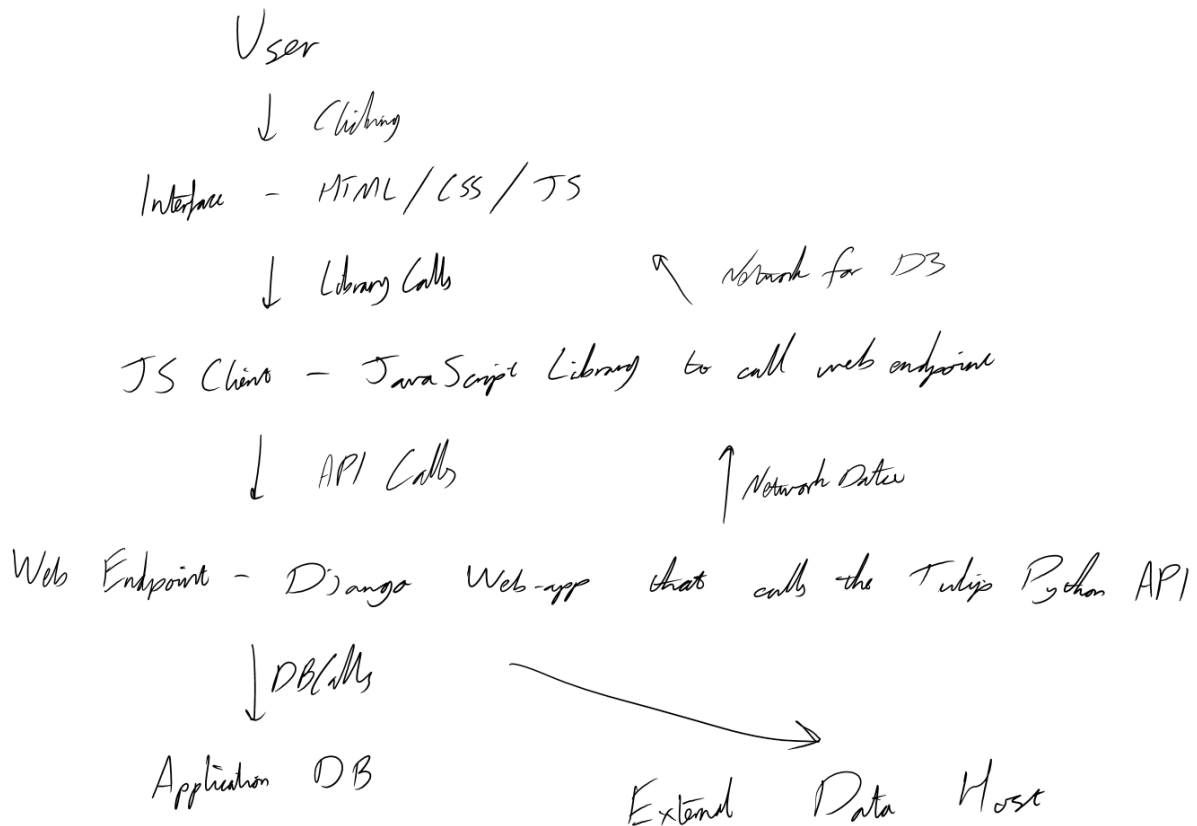 User
↓ Clicking
Interface - HTML / CSS / JS
↓ Library Calls
Network for D3
JS Client - JavaScript Library to call web endpoint
↓ API Calls
Network Data
Web Endpoint - Django Web-app that calls the Tulip Python API
↓ DB Calls
Application DB
External Data Host